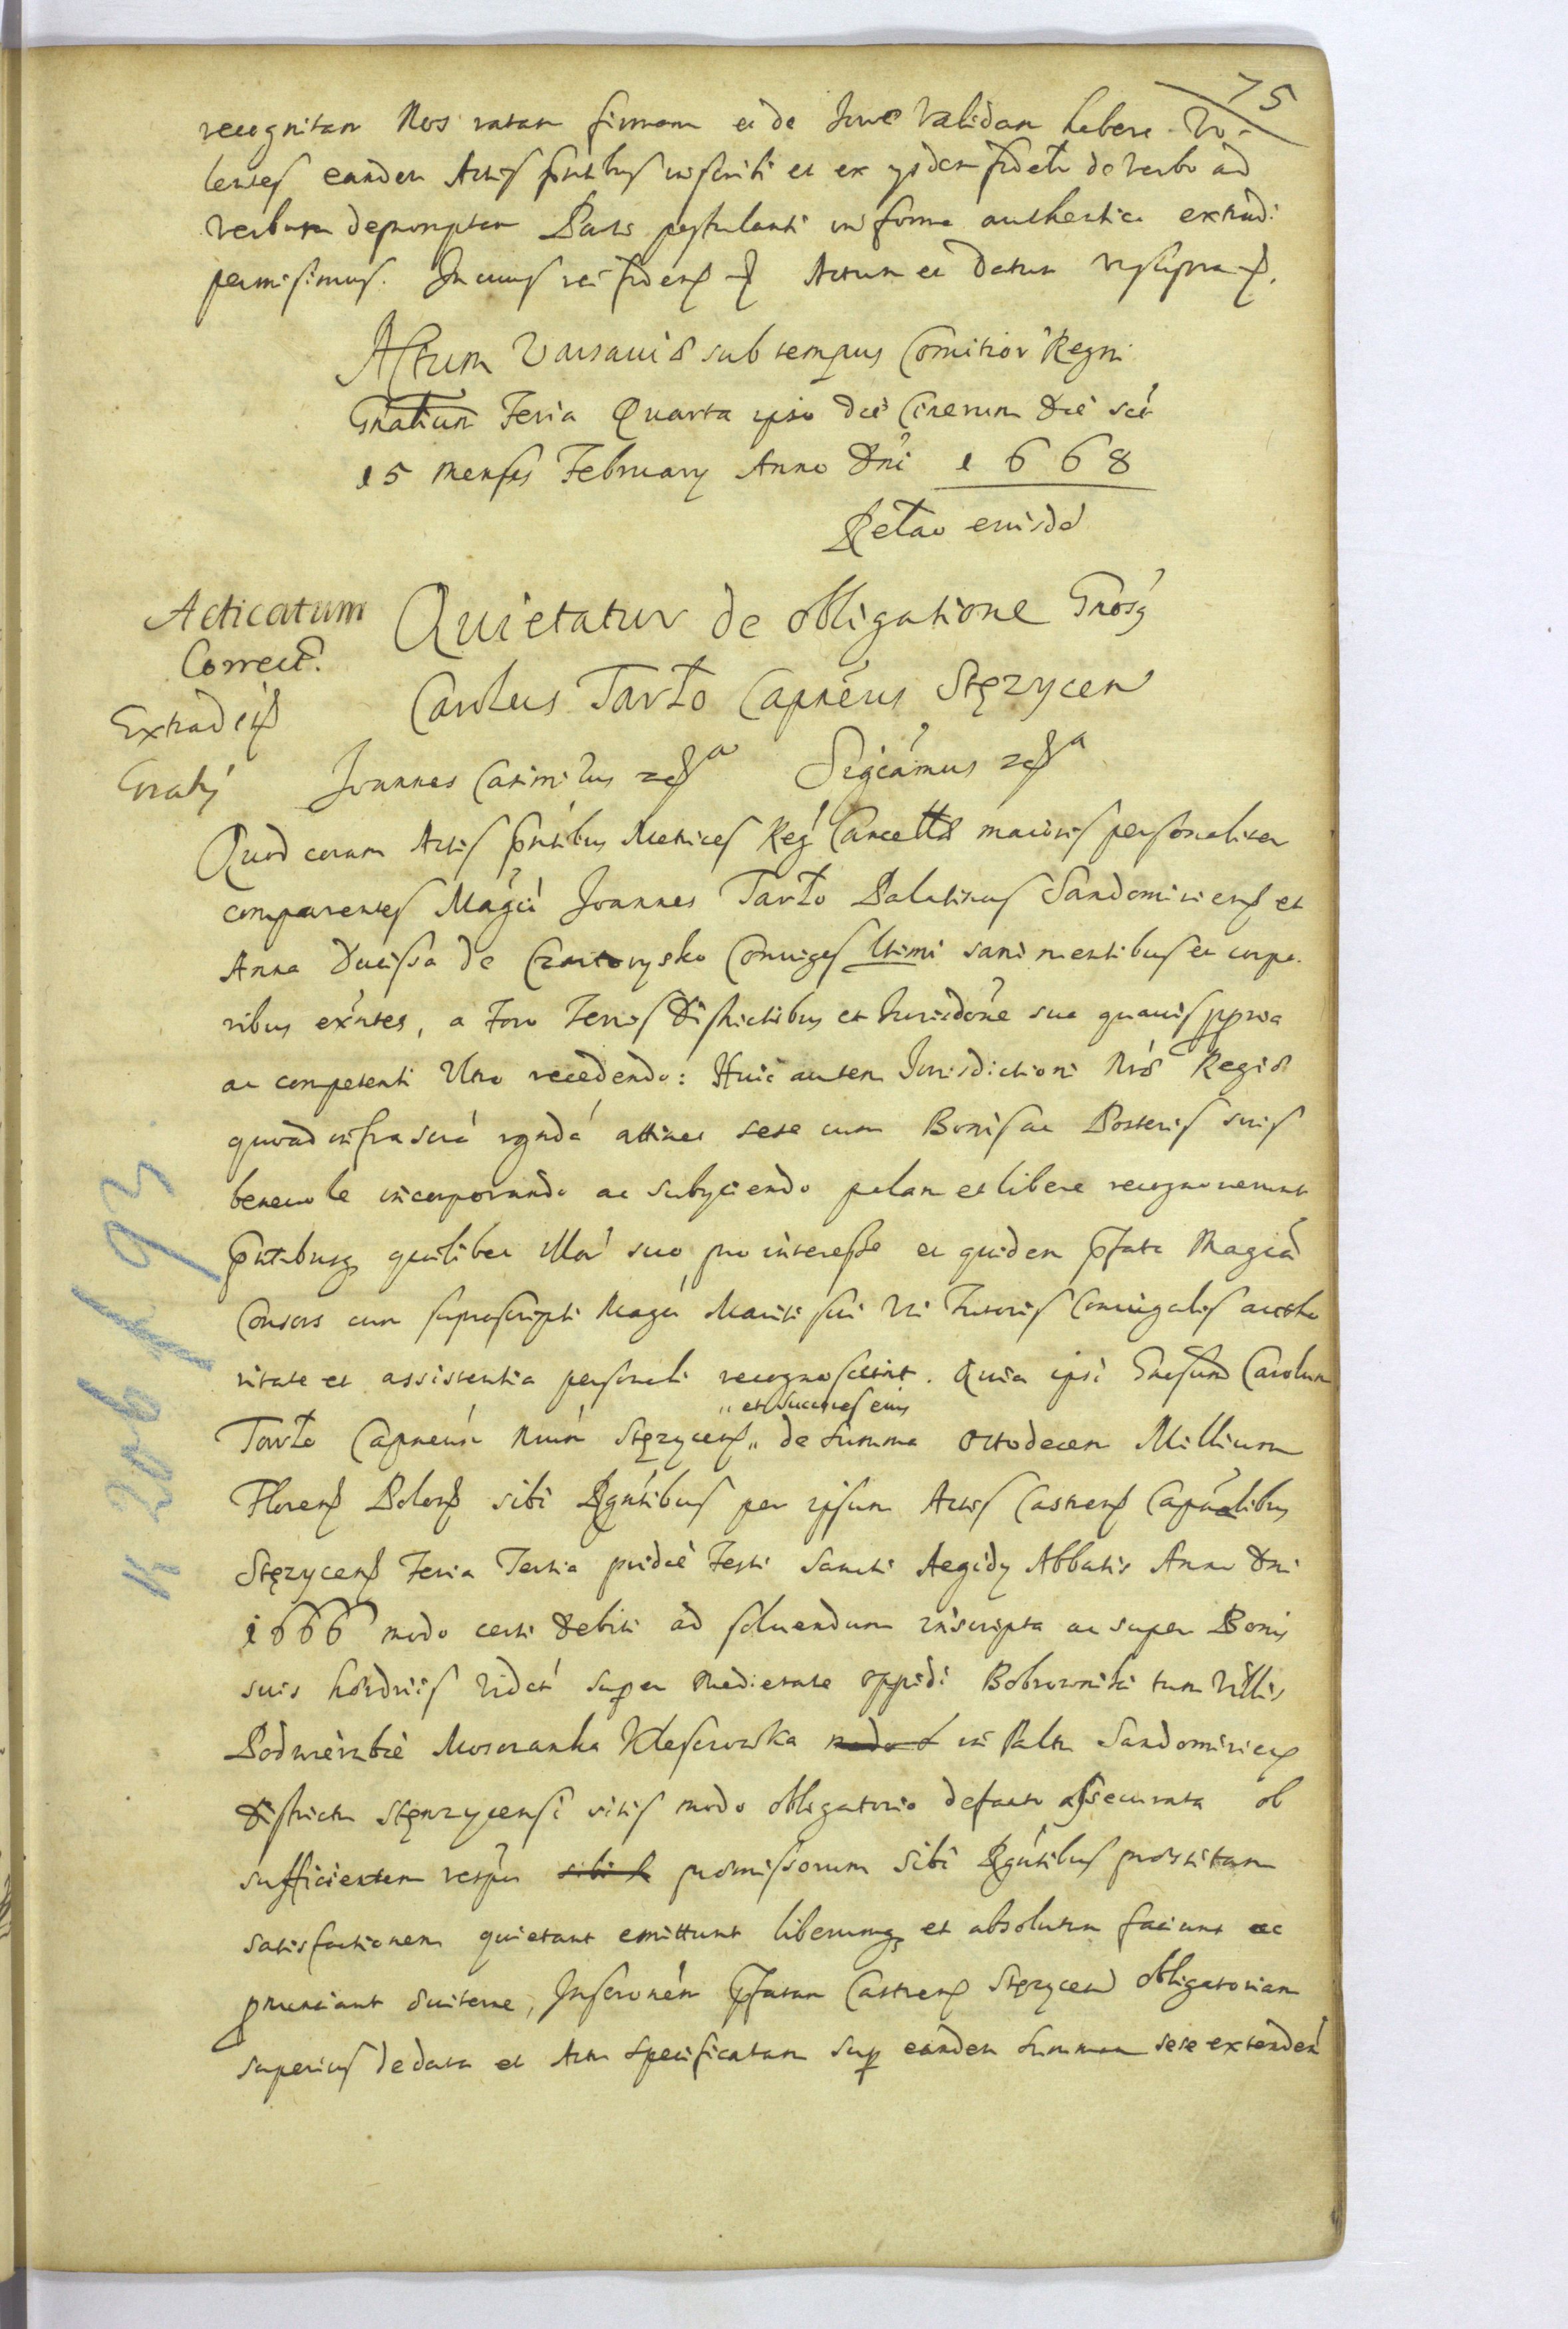 75
recognitam Nos ratam firmam et de Jure validam habere. Vo-
lentes eandem Actis pntibus inscribi et ex ysdem fideli de verbo ad
verbum depromptam Parti postulanti in forma authentica extradi
permisimus. In cuius rei fidem Actum et Datum ut supra.
Actum Varsaviæ sub tempus Comitior Regni
Gnalium Feria Quarta ipso die Cinerum die sct
15 mensis February Anno Dni 1668
Rlatio eiusde
Acticatum
Correct.
Extradit
Gratis
Quietatur de obligatione Gnosq
Carolus Tarło Capneus Stęzycen
Joannes Casimirus etca Sigcamus etca
Quod coram Actis pntibus Metrices Regni Cancellæ maioris personaliter
comparentes Magci Joannes Tarło Palatinus Sandomiriens et
Anna Ducissa de Czartorysko Coniuges ltimi sani mentibus et corpo-
ribus exntes, a Foro Terris Districtibus et Jurisdone sua quavis ppria
ac competenti Utro recedendo: Huic autem Jurisdictioni Nræ Regiæ
quoad infrascri attinet sese cum Bonis ac Posteris suis
benevole incorporando ac subyciendo palam et libere recognoverunt
pntibusq quilibet illor suo pro interesse et quidem pfata Magca
Consors cum suprascripti Magci Mariti sui uti Tutoris Coniugalis autho
ritate et assistentia personali recognoscunt. Quia ipsi Gnosum Carolum
Tarło Capneum Nrum Stęzycens „ et Succres eius „ de summa Octodecem Millium
Floren Polon sibi Rgntibus per ipsum Actis Castren Capnealibus
Stęzycens Feria Tertia pridie Festi Sancti Aegidy Abbatis Anno Dni
1666 modo certi debiti ad solvendum inscripta ac super Bonis
suis hærdriis vidct super medietate oppidi Bobrowniki tum Villis
Podwierzbie Moszczanka in Paltu Sandomirien
districtu Stęnzycensi sitis modo obligatorio de facto assecurata ob
sufficientem respu præmissorum sibi Rgntibus præstitam
satisfactionem quietant emittunt liberumq et absolutum faciunt ac
pnunciant duiterne, Inscronem pfatam Castren Stęzycen obligatoriam
superius de data et Actu specificatam sup eandem summam sese extenden
K 206 f 93